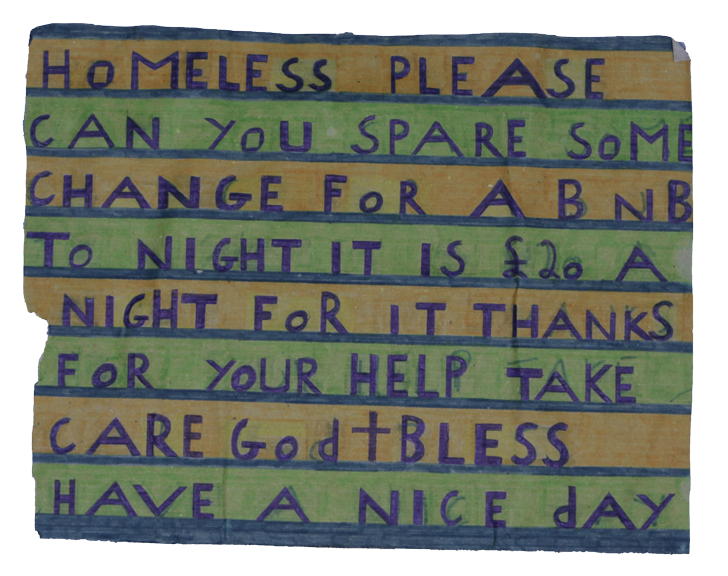 HOMELESS PLEASE
CAN YOU SPARE SOME
CHANGE FOR A B NB
TO NIGHT IT IS £20 A
NIGHT FOR IT THANKS
FOR YOUR HELP TAKE
CARE God✝BLESS
HAVE A NICE dAY